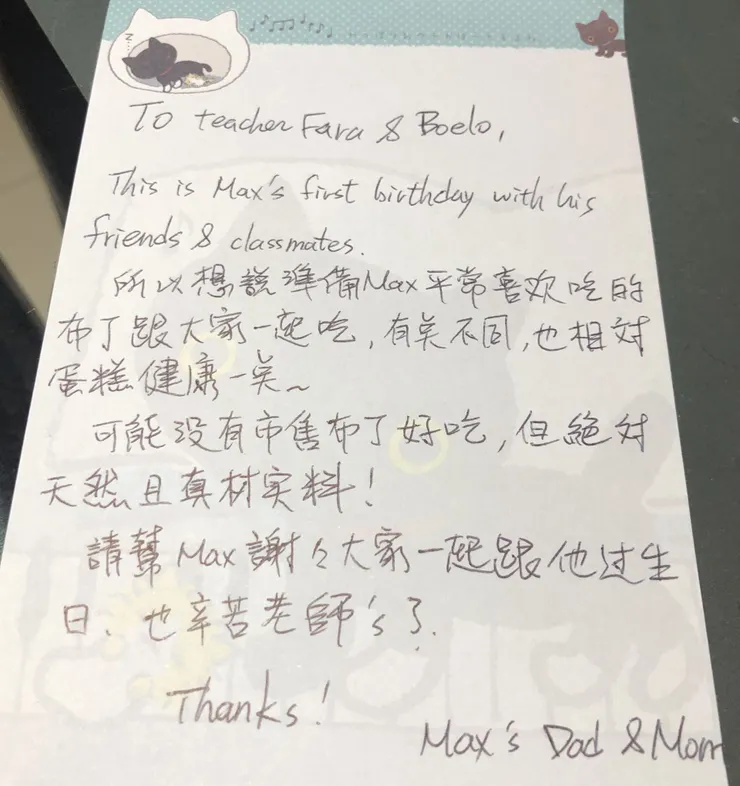 z
To teacher Fara & Boelo,
This is Max's first birthday with his
friends & classmates.
所以想說準備Max平常喜欢吃的
布丁跟大家一起吃,有点不同,也相对
蛋糕健康一点~
可能没有市售布丁好吃,但絕对
天然且真材实料!
請幫Max謝々大家一起跟他过生
日、也辛苦老師's了.
Thanks!
Max's Dad & Mom